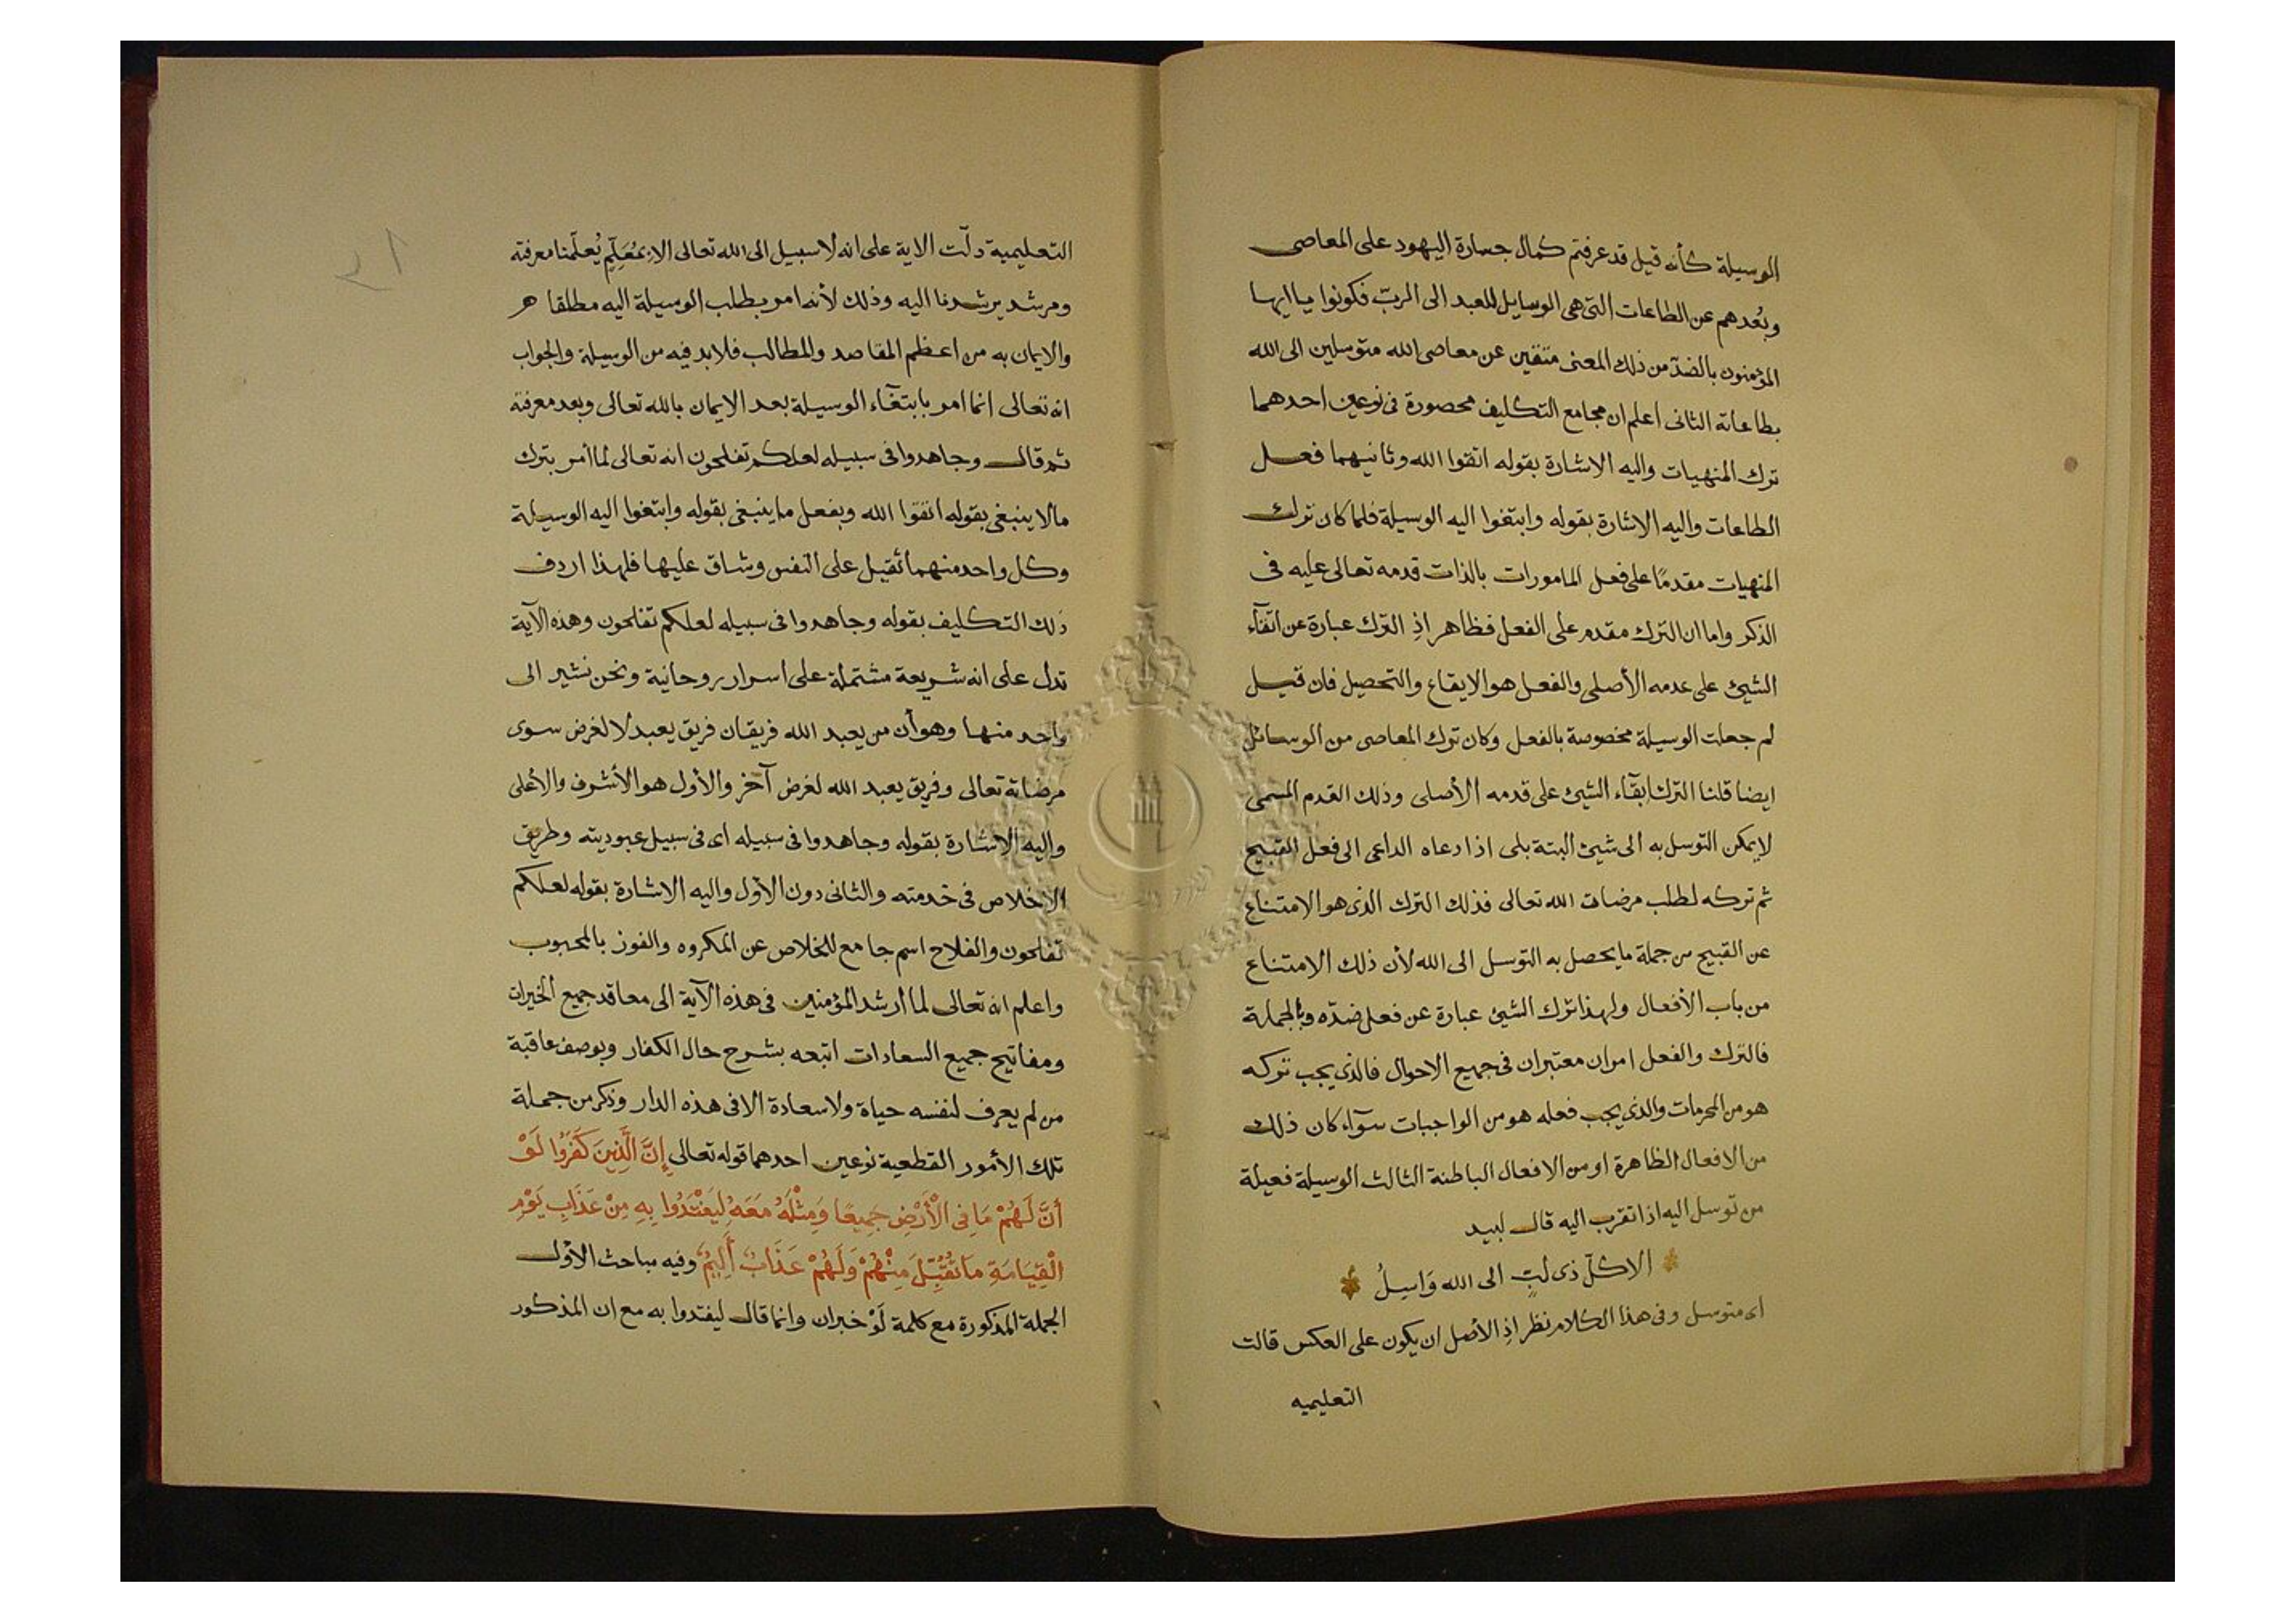 الوسيلة كأنه قيل قد عرفتم كمال جسارة اليهود على المعاصى
وبُعدهم عن الطاعات التى هى الوسايل للعبد الى الربّ فكونوا يا ايها
المؤمنون بالضدّ من ذلك المعنى متقين عن معاصى الله متوسلين الى الله
بطاعاته الثانى اعلم ان مجامع التكليف محصورة فى نوعين احدهما
ترك المنهيات واليه الاشارة بقوله اتقوا الله وثانيهما فعل
الطاعات واليه الاشارة بقوله وابتغوا اليه الوسيلة فلما كان ترك
المنهيات مقدمًا على فعل المامورات بالذات قدمه تعالى عليه فى
الذكر واما ان الترك مقدم على الفعل فظاهر اذِ الترك عبارة عن ابقآء
الشيئ على عدمه الأصلى والفعل هو الايقاع والتحصيل فان قيل
لم جعلت الوسيلة مخصوصة بالفعل وكان ترك المعاصى من الوسائل
ايضا قلنا الترك ابقآء الشيئ على قدمه الأصلى وذلك القدم المسمى
لايمكن التوسل به الى شيئ البتة بلى اذا دعاه الداعى الى فعل القبيح
ثم تركه لطلب مرضات الله تعالى فذلك الترك الذى هو الامتناع
عن القبيح من جملة ما يحصل به التوسل الى الله لأن ذلك الامتناع
من باب الأفعال ولهذا ترك الشيئ عبارة عن فعل ضدّه وبالجملة
فالترك والفعل امران معتبران فى جميع الاحوال فالذى يجب تركه
هو من المحرمات والذى يجب فعله هو من الواجبات سوآء كان ذلك
من الافعال الظاهرة او من الافعال الباطنة الثالث الوسيلة فعيلة
من توسل اليه اذا تقرب اليه قال لبيد
الا كلّ ذى لبٍ الى الله وَاسِيلُ
اى متوسل وفى هذا الكلام نظر اذِ الأصل ان يكون على العكس قالت
التعليميه
التعليمية دلّت الاية على انه لا سبيل الى الله تعالى الا بمُعَلِّمٍ يُعلّمنا معرفته
ومرشد يرشدنا اليه وذلك لأنه امر بطلب الوسيلة اليه مطلقا هر
والايمان به من اعظم المقاصد والمطالب فلابد فيه من الوسيلة والجواب
انه تعالى انما امر بابتغآء الوسيلة بعد الايمان بالله تعالى وبعد معرفته
ثم قال وجاهدوا فى سبيله لعلكم تفلحون انه تعالى لما أمر بترك
مالا ينبغى بقوله اتقوا الله وبفعل ما ينبغى بقوله وابتغوا اليه الوسيلة
وكل واحد منهما ثقيل على النفس وشاق عليها فلهذا اردف
ذلك التكليف بقوله وجاهدوا فى سبيله لعلكم تفلحون وهذه الآية
تدل على انه شريعة مشتملة على اسرار روحانية ونحن نشير الى
واحد منها وهو أن من يعبد الله فريقان فريق يعبد لا لغرض سوى
مرضاته تعالى وفريق يعبد الله لغرض آخر والأول هو الأشرف والأعلى
واليه الاشارة بقوله وجاهدوا فى سبيله اى فى سبيل عبوديته وطريق
الاخلاص فى خدمته والثانى دون الأول واليه الاشارة بقوله لعلكم
تفلحون والفلاح اسم جامع للخلاص عن المكروه والفوز بالمحبوب
واعلم انه تعالى لما أرشد المؤمنين فى هذه الآية الى معاقد جميع الخيرات
ومفاتيح جميع السعادات اتبعه بشرح حال الكفار وبوصف عاقبة
من لم يعرف لنفسه حياة ولا سعادة الا فى هذه الدار وذكر من جملة
تلك الأمور القطعية نوعين احدهما قوله تعالى إِنَّ الَّذِينَ كَفَرُوا لَوْ
أَنَّ لَهُمْ مَا فِى الْأَرْضِ جَمِيعًا وَمِثْلَهُ مَعَهُ لِيَفْتَدُوا بِهِ مِنْ عَذَابِ يَوْمِ
الْقِيَامَةِ مَا تُقُبِّلَ مِنْهُمْ وَلَهُمْ عَذَابٌ أَلِيمٌ وفيه مباحث الأول
الجملة المذكورة مع كلمة لَوْ خبران وانما قال ليفتدوا به مع ان المذكور